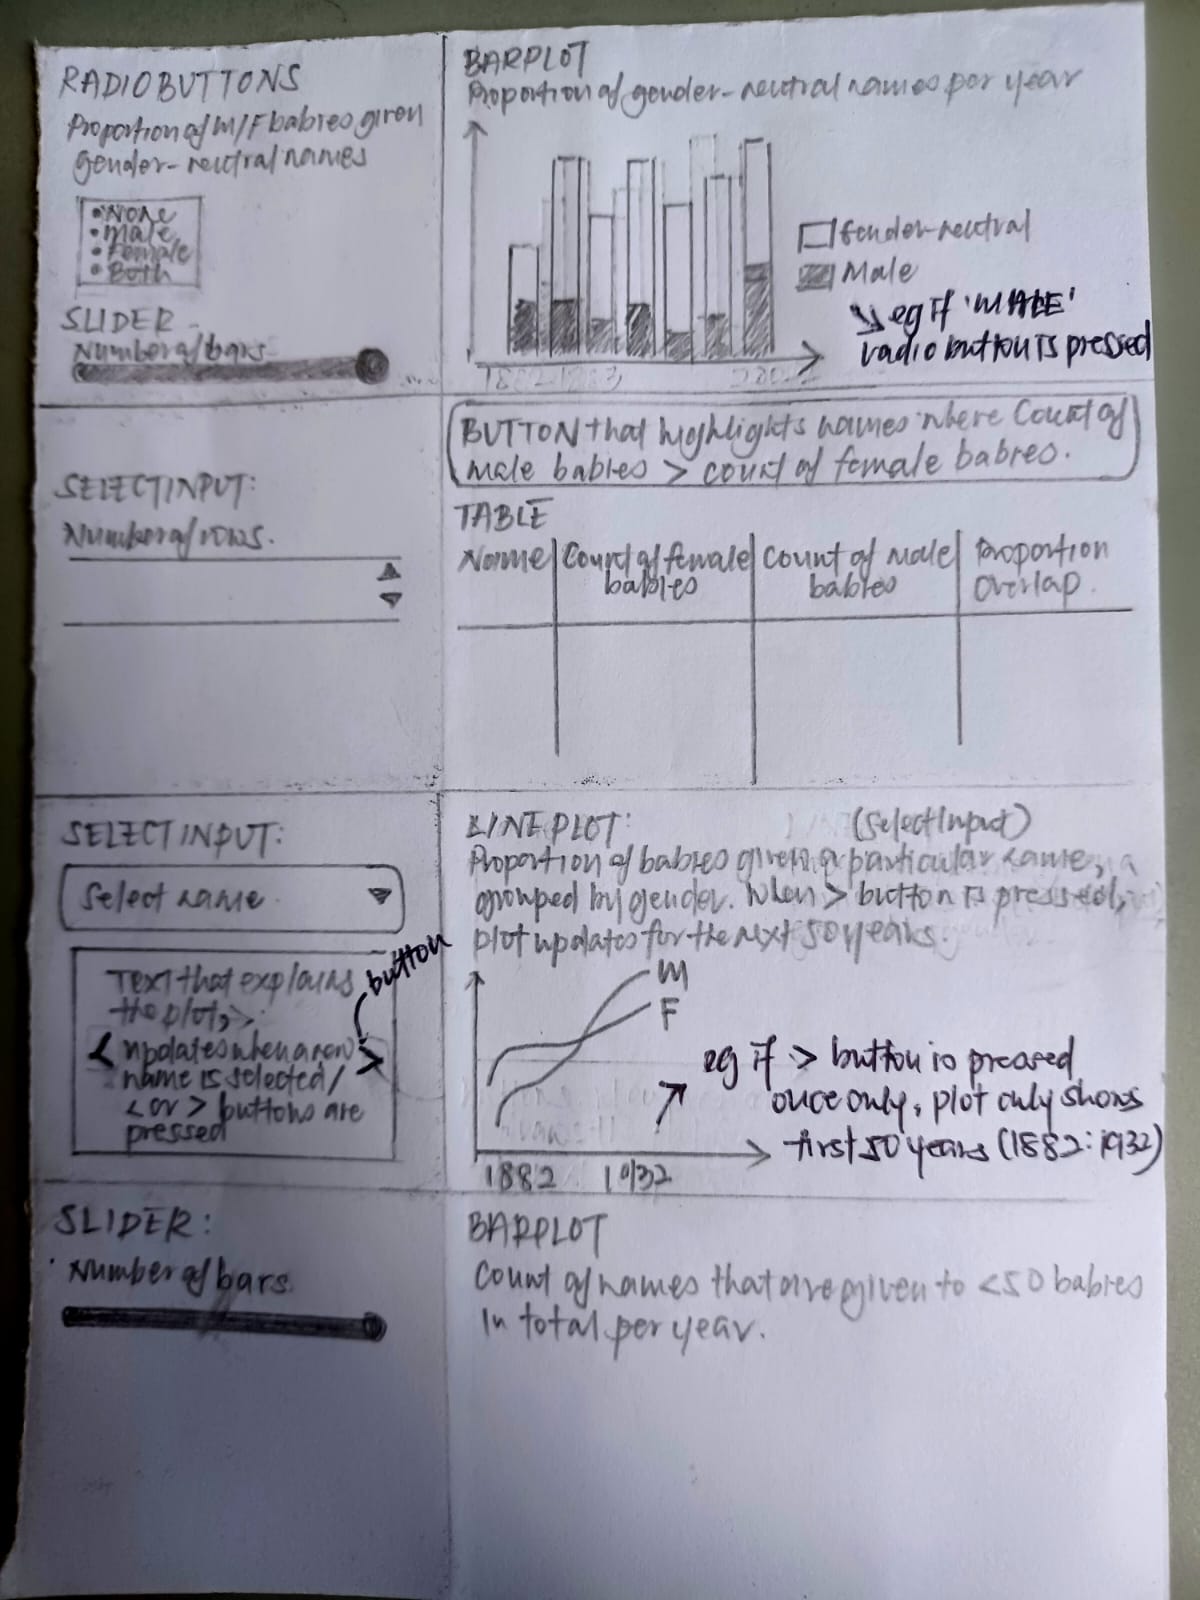 RADIOBUTTONS
Proportion of M/F babies given
gender-neutral names
• None
• Male
• Female
• Both
SLIDER
Number of bars
BARPLOT
Proportion of gender-neutral names per year
Gender-neutral
Male
eg if 'MALE'
radio button is pressed
1882 1883
SELECTINPUT:
Number of rows.
BUTTON that highlights names where Count of
male babies > count of female babies.
TABLE
Name
Count of female
babies
Count of male
babies
Proportion
Overlap.
SELECTINPUT:
Select name
Text that explains
the plot,
button
< updates when a new >
name is selected/
< or > buttons are
pressed
LINEPLOT:
(SelectInput)
Proportion of babies given a particular name,
grouped by gender. When > button is pressed,
plot updates for the next 50 years.
M
F
eg if > button is pressed
once only, plot only shows
first 50 years (1882:1932)
1882 1932
SLIDER:
Number of bars.
BARPLOT
Count of names that are given to <50 babies
in total per year.